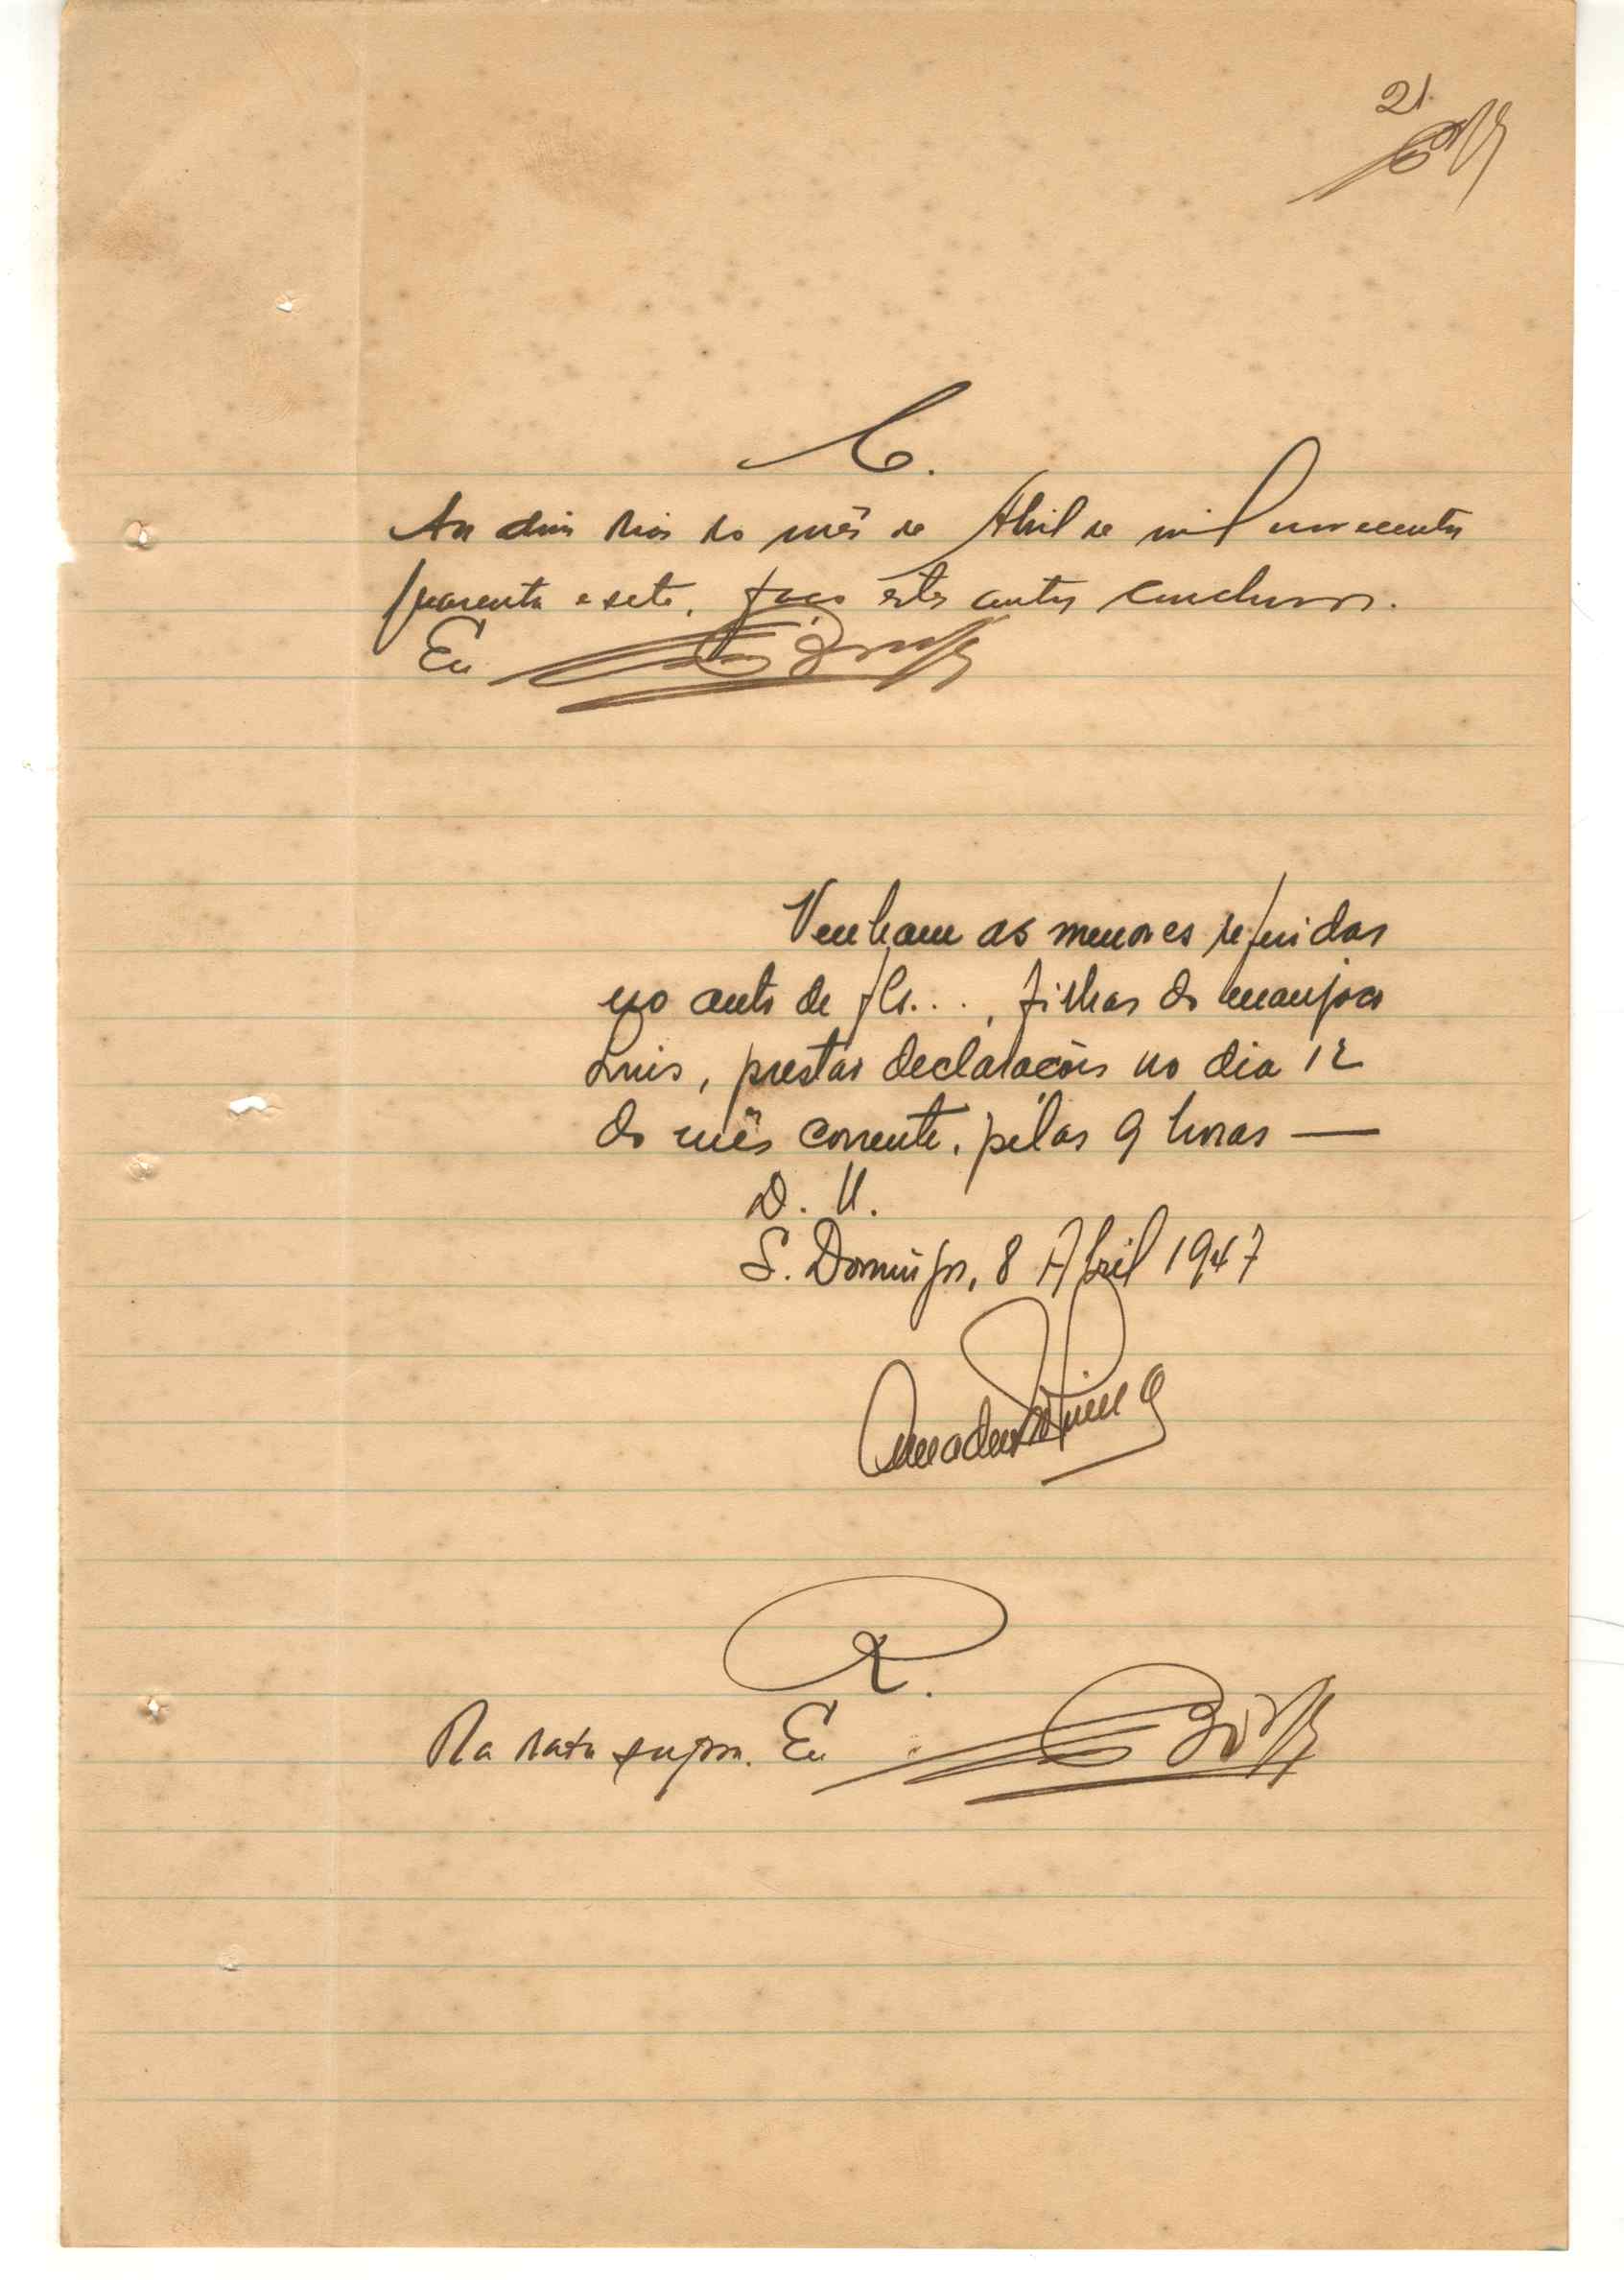 21.
C.
Aos dias do mês de Abril de mil novecentos
quarenta e sete, faço êstes autos conclusos.
Eu
Venham as menores referidas
no auto de fls..., filhas do manjaco
Luis, prestar declarações no dia 12
do mês corrente, pelas 9 horas —
S. Domingos, 8 Abril 1947
R.
Na data supra. Eu